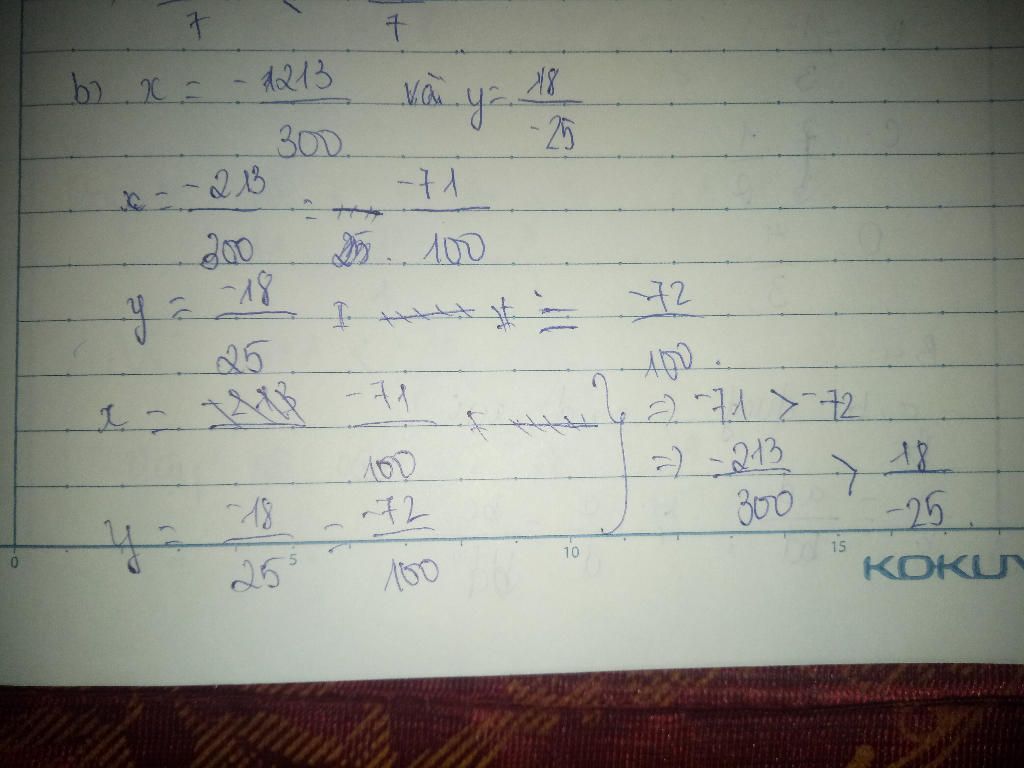 7 7
b) x = -213/300 và y = 18/-25
x = -213/300 = -71/100
y = -18/25 = -72/100
x = -71/100 => -71 > -72
y = -18/25 = -72/100 => -213/300 > 18/-25
0 5 10 15 KOKUY